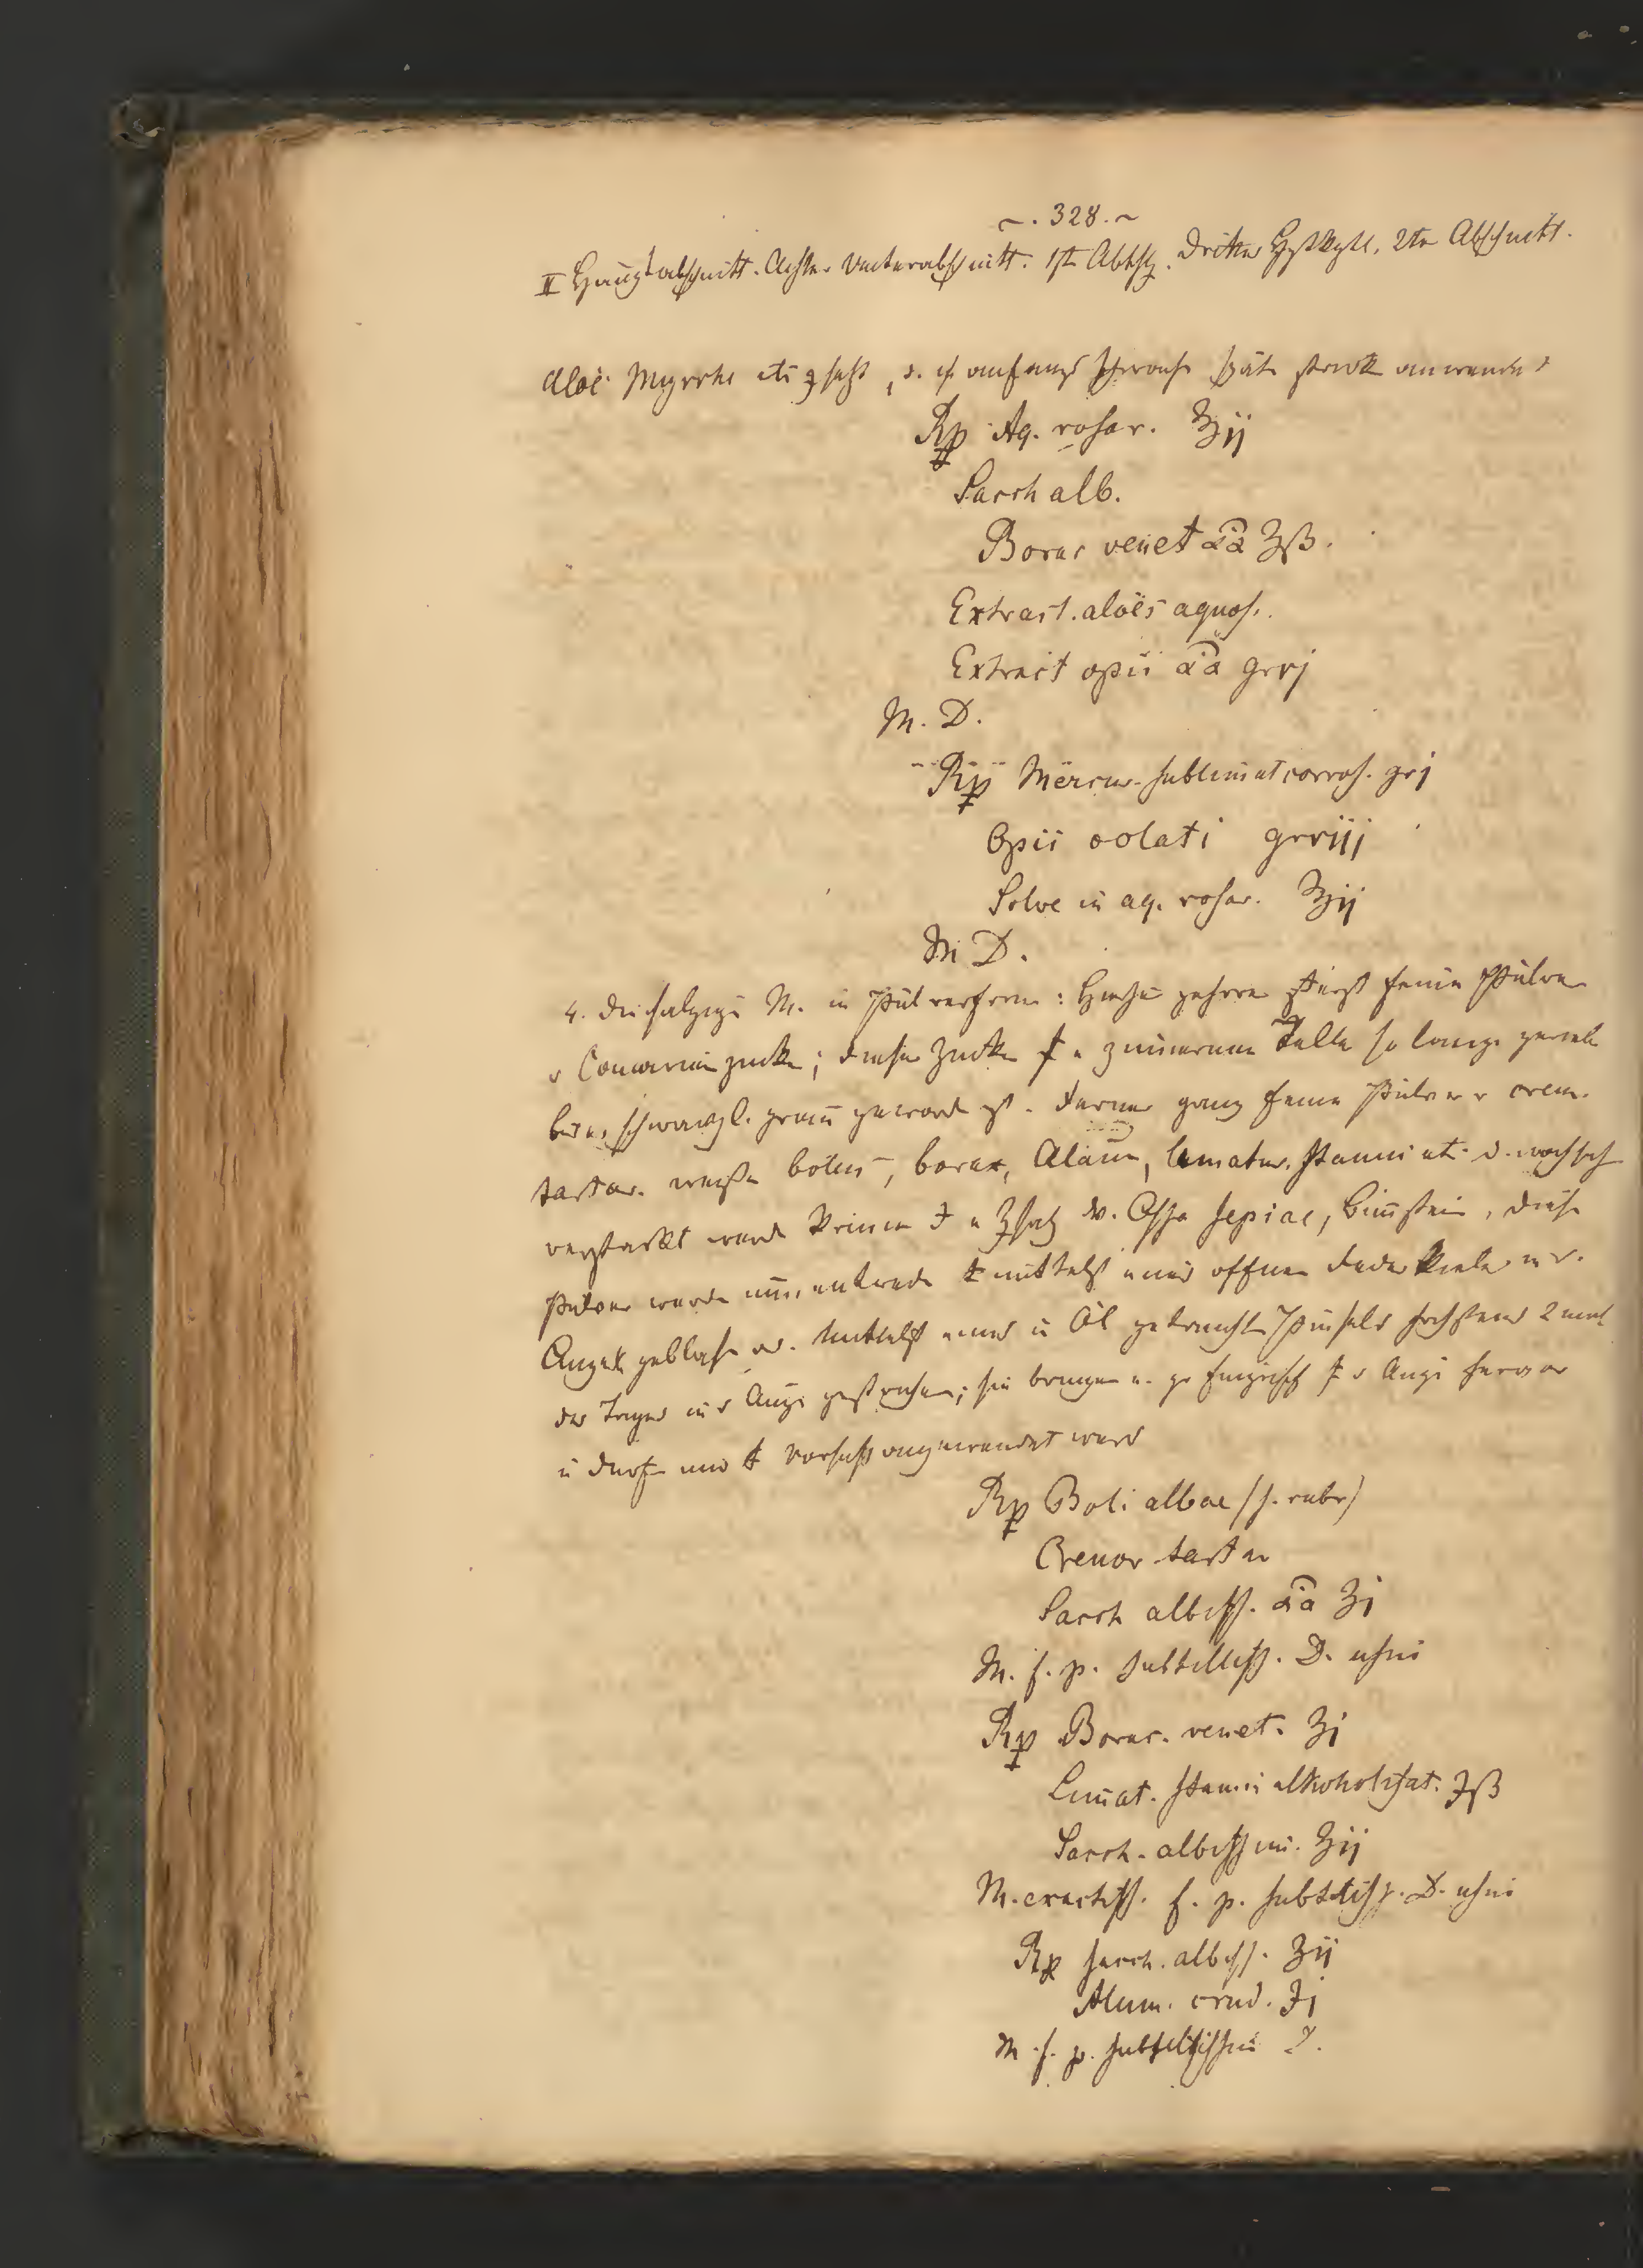 ~. 328. ~
II Hauptabschnitt. Erster Unterabschnitt. 1ste Abthlg. Drittes Hptkptl. 2ter Abschnitt.
Aloë Myrrhe etc gesetzt, anfangs schwach später stark anwendet
Rp Aq. rosar. ℥ij
Sacch alb.
Borac venet āā ʒß.
Extract. aloës aquos.
Extract opii āā grvj
M. D.
Rp Mercur. sublimat corros. grj
Opii colati grviij
Solve in aq. rosar. ℥ij
M D.
4. Die salzige M. in Pulverform: Hieher gehören feine Pulver
v Canarien zucker; dieser Zucker zinnernen Teller so lange gerieben
bis er schwarzl. grau geworden ist. Ferner ganz feine Pulver v crem.
tartar. weißen bolus, borax, Alaun, limatur. stanni etc.
verstärkt werden können Zusatz v. Ossa sepiae, Bimstein, diese
Pulver werden nun entweder mittelst eines offnen Federkiels in d.
Auge geblasen od. mittelst eines in Öl getauchten Pinsels höchstens 2 mal
des Tages ins Auge gestrichen; sie bringen Auge hervor
u dürfen nur Vorsicht angewendet werd
Rp Boli albae (s. rubr)
Cremor tartar
Sacch albiss. āā ʒj
M. f. p. subtiliss. D. usui
Rp Borac. venet. ʒj
Limat. stanni alkoholisat. ℈ß
Sacch. albissimi. ʒij
M. exactiss. f. p. subtiliss. D. usui
Rp sacch. albiss. ʒij
Alum. crud. ℈j
M. f. p. subtilissim D.